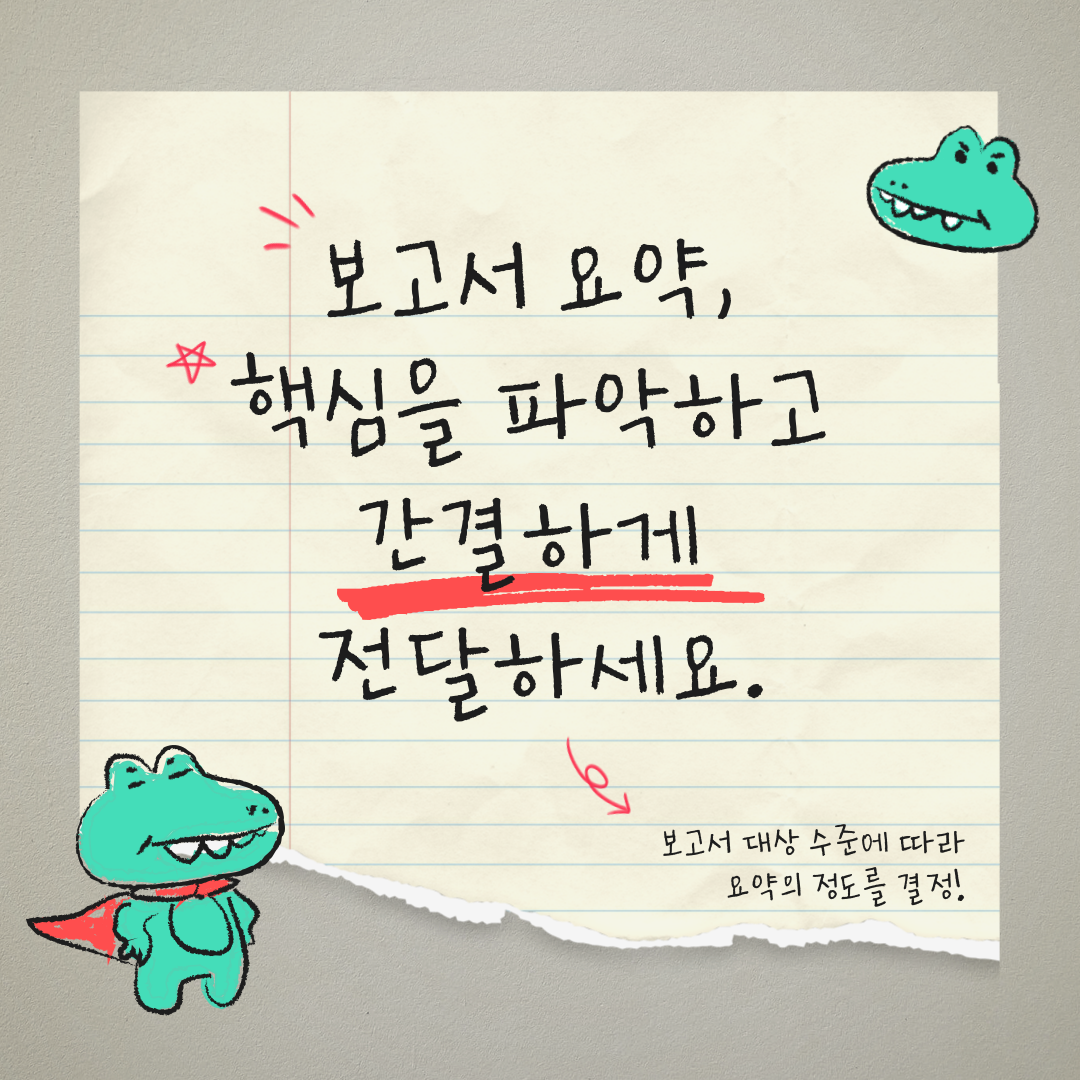 보고서 요약,
핵심을 파악하고
간결하게
전달하세요.
보고서 대상 수준에 따라
요약의 정도를 결정!